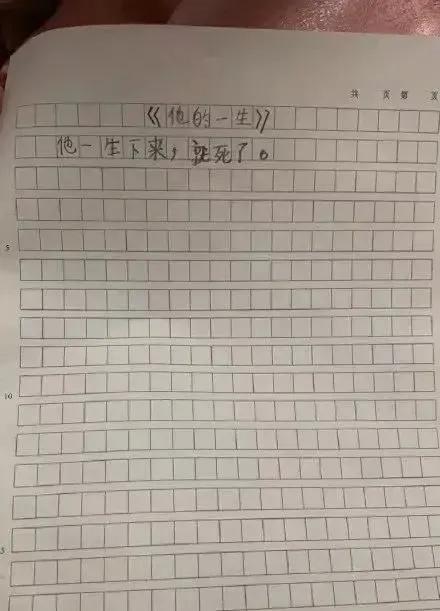 共 页 第 页
《他的一生》
他一生下来，就死了。
5
10